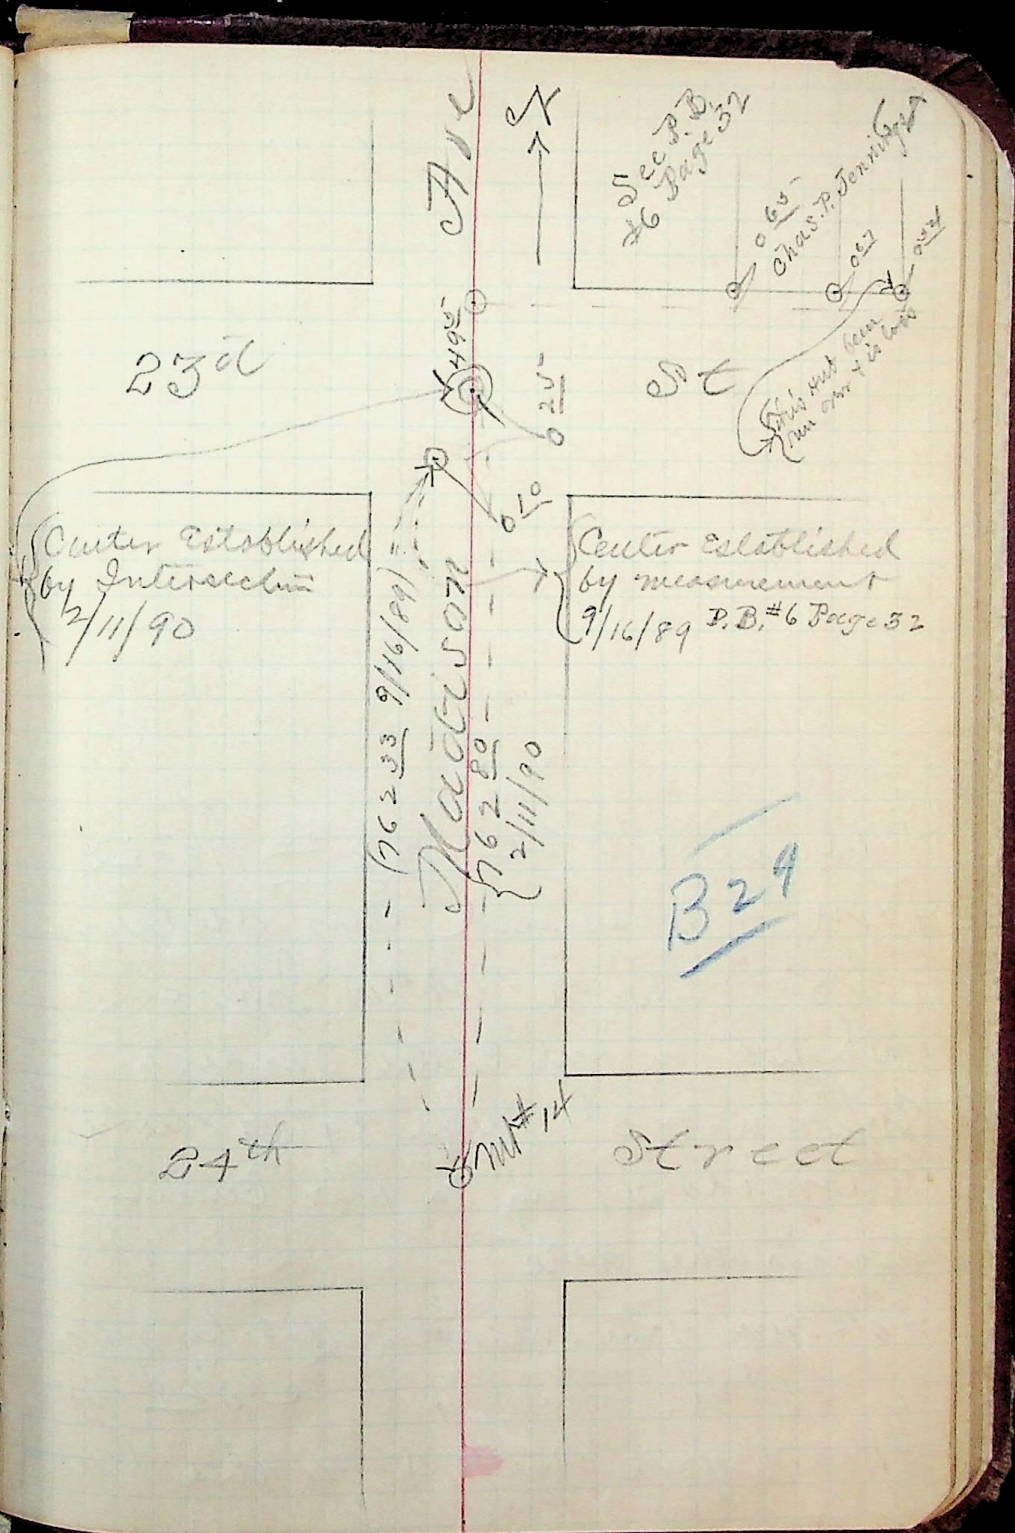 Ave
See P.B.
#6 Page 32
Chas. P. Jennings
0 65
0 57
0 54
This Hub been
run over & is
23d St
49 5
0 25
0 10
Center Established
by Intersection
2/11/90
Center Established
by measurement
9/16/89 P.B. #6 Page 32
Madison
(762 33 9/16/89)
{762 80
2/11/90
B 29
Mt # 14
24th Street